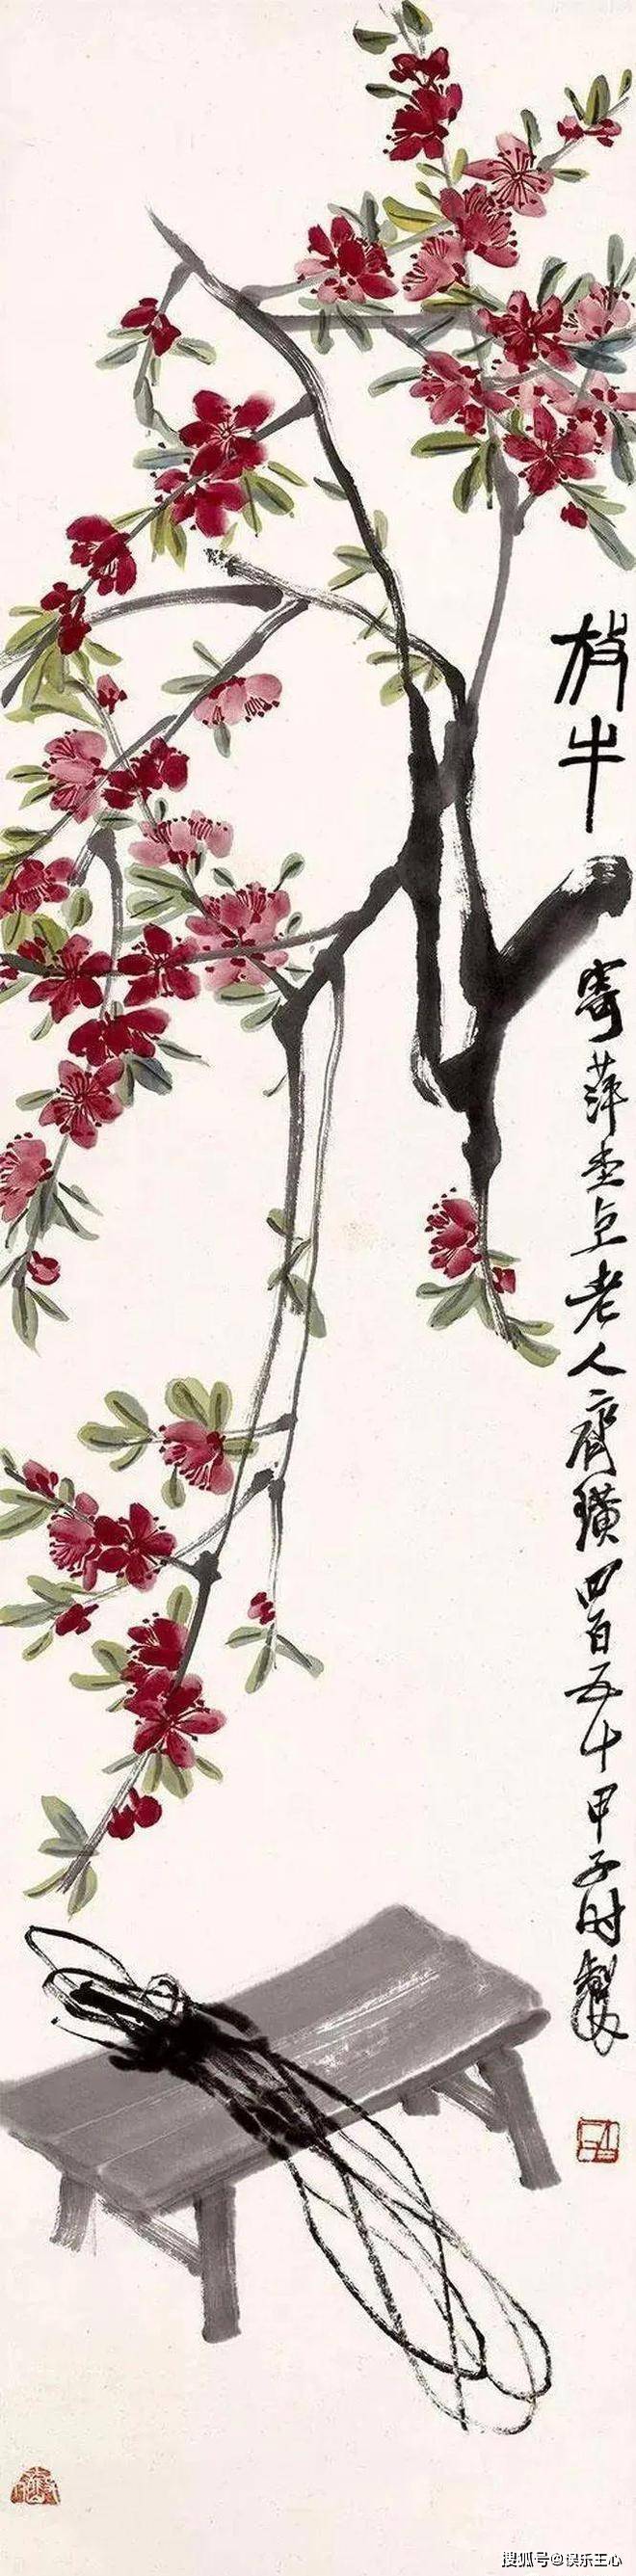 放牛
寄萍堂上老人齊璜四百五十甲子时製
搜狐号@娱乐王心